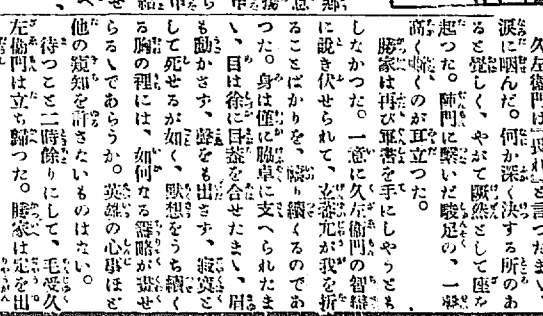 久左衞門は と言つたまゝ、
涙に咽んだ。何か深く決する所のあ
ると覺しく、やがて蹶然として座を
起つた。陣門に繋いだ駿足の、一聲
高く嘶くのが耳立つた。
勝家は再び軍書を手にしやうとも
しなかつた。一意に久左衞門の智辯
に說き伏せられて、玄蕃允が我を折
ることばかりを、り續くるのであ
つた。身は僅に脇卓に支へられたま
ゝ、目は徐に目蓋を合せたまゝ、眉
も動かさず、聲をも出さず、寂寞と
して死せるが如く、默想をうち續く
る胸の裡には、如何なる略が藏せ
らるゝであらうか。英雄の心事ほど
他の窺知を許さないものはない。
待つこと二時餘りにして、毛受久
左衞門は立ち歸つた。勝家は足を出